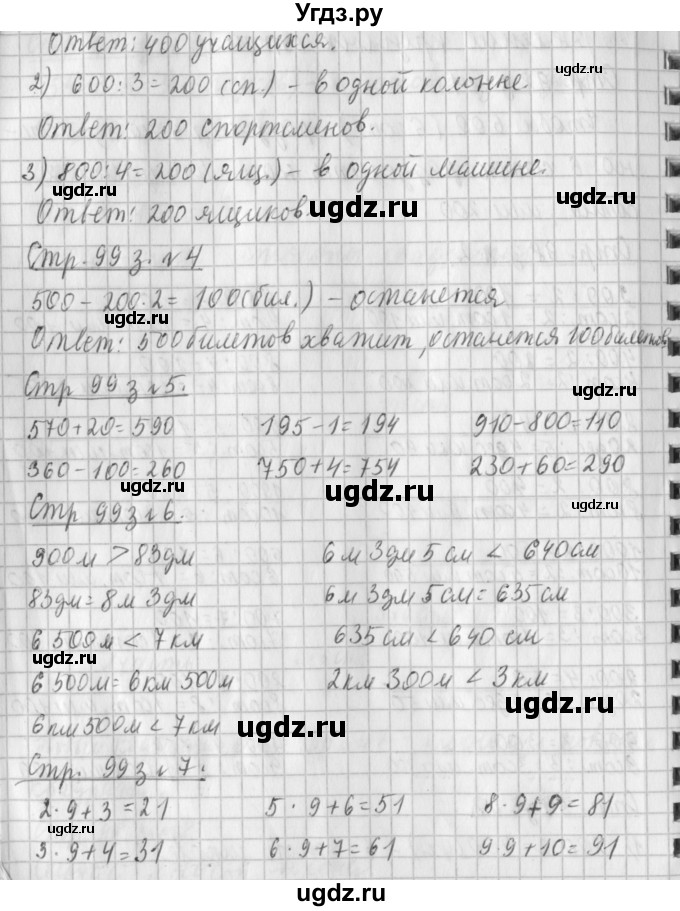 Угдз.ру
Ответ: 400 учащихся.
ugdz.ru
2) 600:3=200 (сп.) - в одной колонне.
Ответ: 200 спортсменов.
ugdz.ru
3) 800:4=200 (ящ.) - в одной машине.
ugdz.ru
Ответ: 200 ящиков. ugdz.ru
Стр. 99 з. №4
ugdz.ru
500-200·2= 100(бил.) - останется
ugdz.ru
Ответ: 500 билетов хватит, останется 100 билетов
Стр 99 з №5.
ugdz.ru
570+20=590 195-1=194 910-800=110
360-100=260 750+4=754 230+60=290
ugdz.ru ugdz.ru
Стр 99 з №6.
ugdz.ru
900м > 83дм 6м 3дм 5см < 640см
83дм=8м 3дм 6м 3дм 5см=635см
6 500м < 7км 635см < 640см
ugdz.ru
6 500м=6км 500м 2км 300м < 3км
ugdz.ru
6км 500м < 7км ugdz.ru
Стр. 99 з №7.
2·9+3=21 5·9+6=51 8·9+9=81
ugdz.ru
3·9+4=31 6·9+7=61 9·9+10=91
ugdz.ru
ugdz.ru